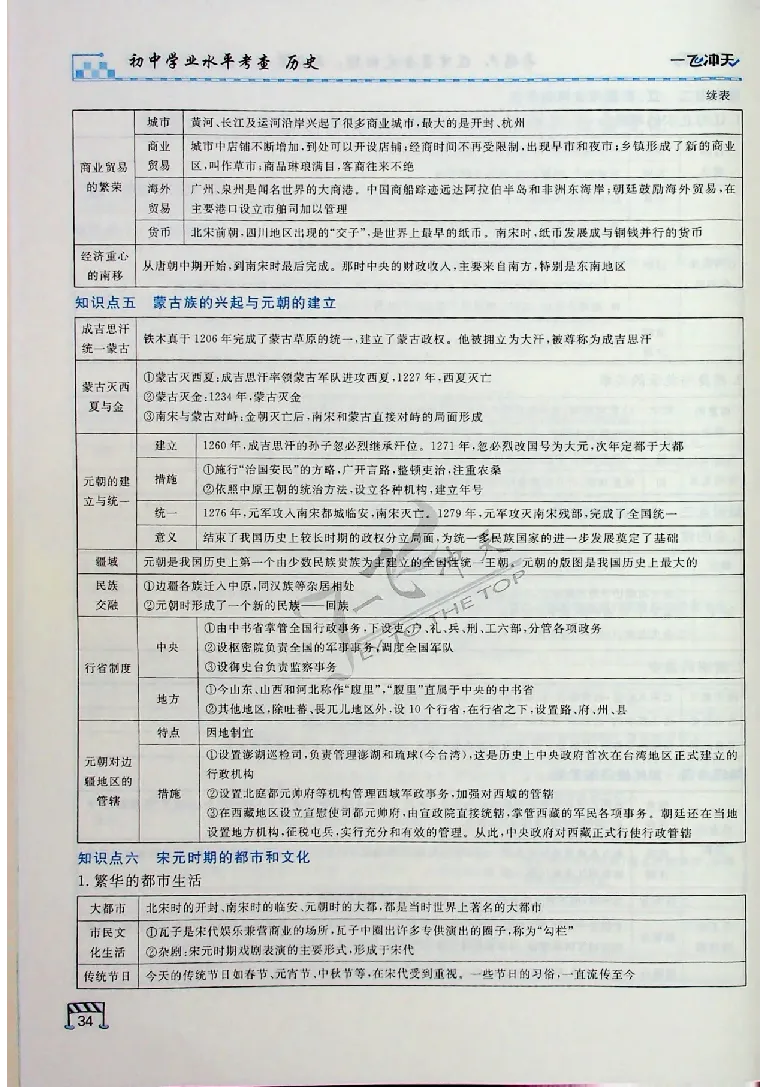 初中学业水平考查 历史
一飞冲天
续表
商业贸易的繁荣
城市 黄河、长江及运河沿岸兴起了很多商业城市,最大的是开封、杭州
商业贸易 城市中店铺不断增加,到处可以开设店铺;经商时间不再受限制,出现早市和夜市;乡镇形成了新的商业
区,叫作草市;商品琳琅满目,客商往来不绝
海外贸易 广州、泉州是闻名世界的大商港。中国商船踪迹远达阿拉伯半岛和非洲东海岸;朝廷鼓励海外贸易,在
主要港口设立市舶司加以管理
货币 北宋前期,四川地区出现的“交子”,是世界上最早的纸币。南宋时,纸币发展成与铜钱并行的货币
经济重心的南移 从唐朝中期开始,到南宋时最后完成。那时中央的财政收入,主要来自南方,特别是东南地区
知识点五 蒙古族的兴起与元朝的建立
成吉思汗统一蒙古 铁木真于1206年完成了蒙古草原的统一,建立了蒙古政权。他被拥立为大汗,被尊称为成吉思汗
蒙古灭西夏与金
①蒙古灭西夏:成吉思汗率领蒙古军队进攻西夏,1227年,西夏灭亡
②蒙古灭金:1234年,蒙古灭金
③南宋与蒙古对峙:金朝灭亡后,南宋和蒙古直接对峙的局面形成
元朝的建立与统一
建立 1260年,成吉思汗的孙子忽必烈继承汗位。1271年,忽必烈改国号为大元,次年定都于大都
措施 ①施行“治国安民”的方略,广开言路,整顿吏治,注重农桑
②依照中原王朝的统治方法,设立各种机构,建立年号
统一 1276年,元军攻入南宋都城临安,南宋灭亡。1279年,元军攻灭南宋残部,完成了全国统一
意义 结束了我国历史上较长时期的政权分立局面,为统一多民族国家的进一步发展奠定了基础
疆域 元朝是我国历史上第一个由少数民族贵族为主建立的全国性统一王朝。元朝的版图是我国历史上最大的
民族交融 ①边疆各族迁入中原,同汉族等杂居相处
②元朝时形成了一个新的民族——回族
行省制度
中央 ①由中书省掌管全国行政事务,下设吏、户、礼、兵、刑、工六部,分管各项政务
②设枢密院负责全国的军事事务,调度全国军队
③设御史台负责监察事务
地方 ①今山东、山西和河北称作“腹里”,“腹里”直属于中央的中书省
②其他地区,除吐蕃、畏兀儿地区外,设10个行省,在行省之下,设置路、府、州、县
元朝对边疆地区的管辖
特点 因地制宜
措施 ①设置澎湖巡检司,负责管理澎湖和琉球(今台湾),这是历史上中央政府首次在台湾地区正式建立的
行政机构
②设置北庭都元帅府等机构管理西域军政事务,加强对西域的管辖
③在西藏地区设立宣慰使司都元帅府,由宣政院直接统辖,掌管西藏的军民各项事务。朝廷还在当地
设置地方机构,征税屯兵,实行充分和有效的管理。从此,中央政府对西藏正式行使行政管辖
知识点六 宋元时期的都市和文化
1.繁华的都市生活
大都市 北宋时的开封、南宋时的临安、元朝时的大都,都是当时世界上著名的大都市
市民文化生活 ①瓦子是宋代娱乐兼营商业的场所,瓦子中圈出许多专供演出的圈子,称为“勾栏”
②杂剧:宋元时期戏剧表演的主要形式,形成于宋代
传统节日 今天的传统节日如春节、元宵节、中秋节等,在宋代受到重视。一些节日的习俗,一直流传至今
34
一飞冲天
KEY TO THE TOP